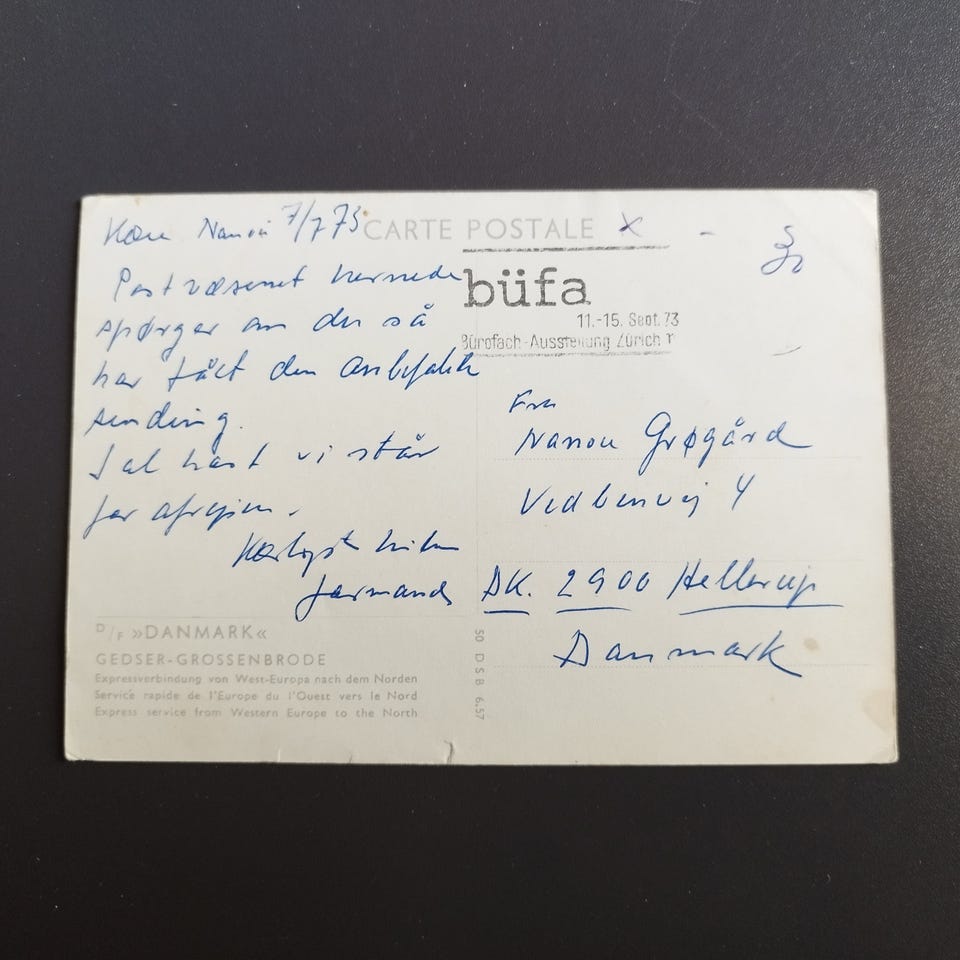 Kære Nanou 7/7 73
CARTE POSTALE
Postvæsenet hernede
spørger om du så
har fået den anbefalede
sending.
I al hast vi står
for afrejsen.
Kærligst hilsen
büfa
11.-15. Sept. 73
Bürofach-Ausstellung Zürich
Fru
Nanou Grøgård
Vedbenvej 4
DK. 2900 Hellerup
Danmark
D/F »DANMARK«
GEDSER-GROSSENBRODE
Expressverbindung von West-Europa nach dem Norden
Service rapide de l'Europe du l'Ouest vers le Nord
Express service from Western Europe to the North
50 DSB 6.57